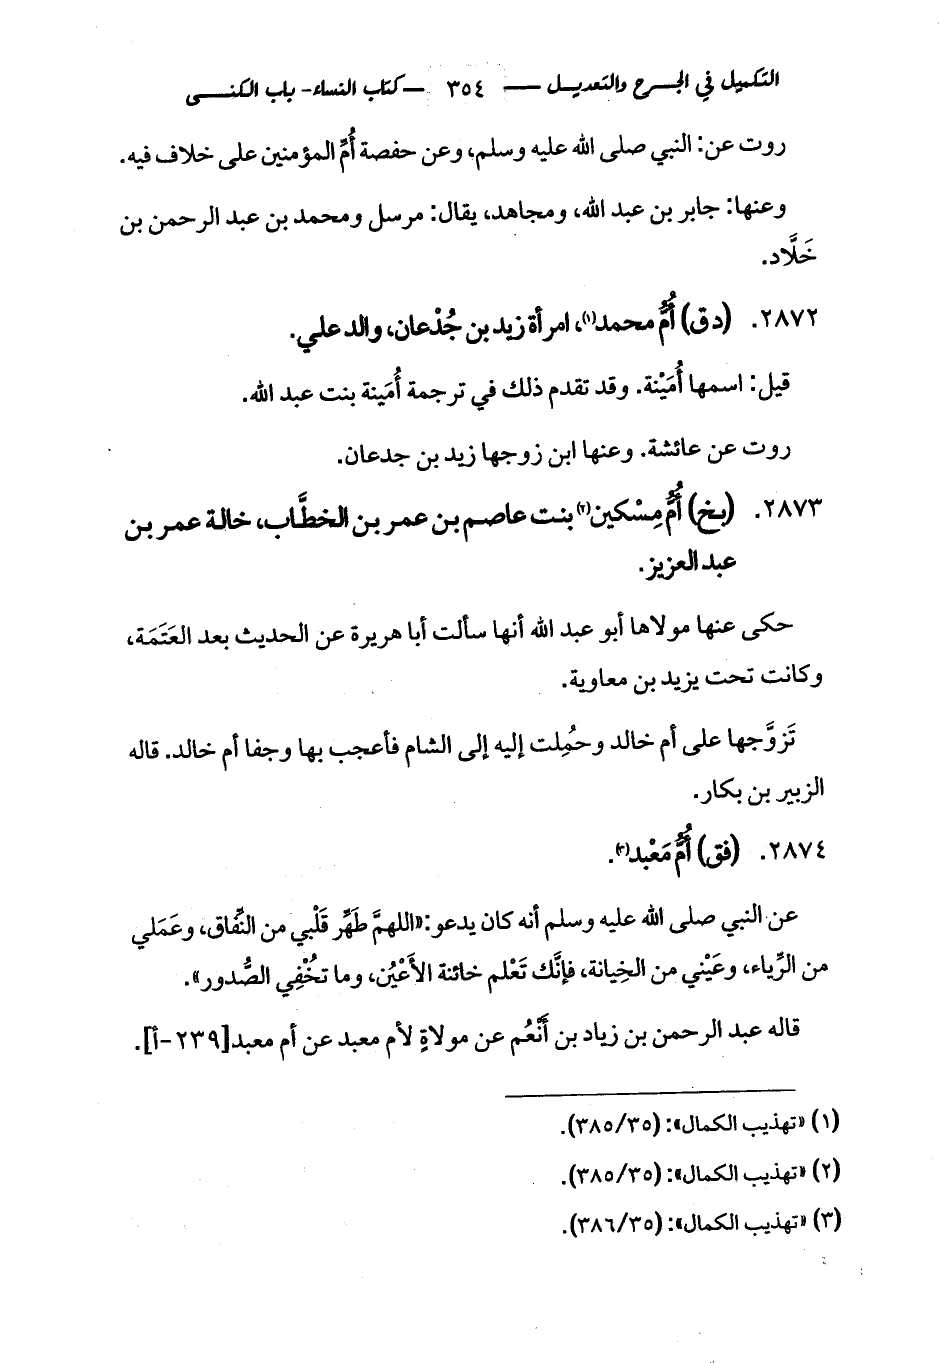 التكميل في الجرح والتعديل — ٣٥٤ — كتاب النساء - باب الكنى
روت عن: النبي صلى الله عليه وسلم، وعن حفصة أُمِّ المؤمنين على خلاف فيه.
وعنها: جابر بن عبد الله، ومجاهد، يقال: مرسل ومحمد بن عبد الرحمن بن
خَلَّاد.
٢٨٧٢. (د ق) أُمُّ محمد(١)، امرأة زيد بن جُدْعان، والد علي.
قيل: اسمها أُمَيْنة. وقد تقدم ذلك في ترجمة أُمَينة بنت عبد الله.
روت عن عائشة. وعنها ابن زوجها زيد بن جدعان.
٢٨٧٣. (بخ) أُمُّ مِسْكين(٢) بنت عاصم بن عمر بن الخطَّاب، خالة عمر بن
عبد العزيز.
حكى عنها مولاها أبو عبد الله أنها سألت أبا هريرة عن الحديث بعد العَتَمَة،
وكانت تحت يزيد بن معاوية.
تَزوَّجها على أم خالد وحُمِلت إليه إلى الشام فأعجب بها وجفا أم خالد. قاله
الزبير بن بكار.
٢٨٧٤. (فق) أُمُّ مَعْبد(٣).
عن النبي صلى الله عليه وسلم أنه كان يدعو: «اللهمَّ طَهِّر قَلْبي من النِّفاق، وعَمَلي
من الرِّياء، وعَيْني من الخِيانة، فإنَّك تَعْلم خائنة الأَعْيُن، وما تخُفْي الصُّدور».
قاله عبد الرحمن بن زياد بن أَنْعُم عن مولاةٍ لأم معبد عن أم معبد[٢٣٩-أ].
(١) «تهذيب الكمال»: (٣٨٥/٣٥).
(٢) «تهذيب الكمال»: (٣٨٥/٣٥).
(٣) «تهذيب الكمال»: (٣٨٦/٣٥).